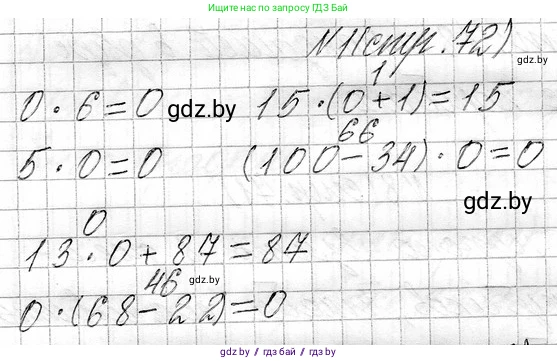 Пишите нас по запросу ГДЗ Бай
N 1(стр. 72)
gdz.by
1
0 · 6 = 0 gdz.by 15 · (0 + 1) = 15
66
5 · 0 = 0 (100 - 34) · 0 = 0
gdz.by
0
13 · 0 + 87 = 87
46 gdz.by
0 · (68 - 22) = 0
gdz.by /гдз бай / гдз бел